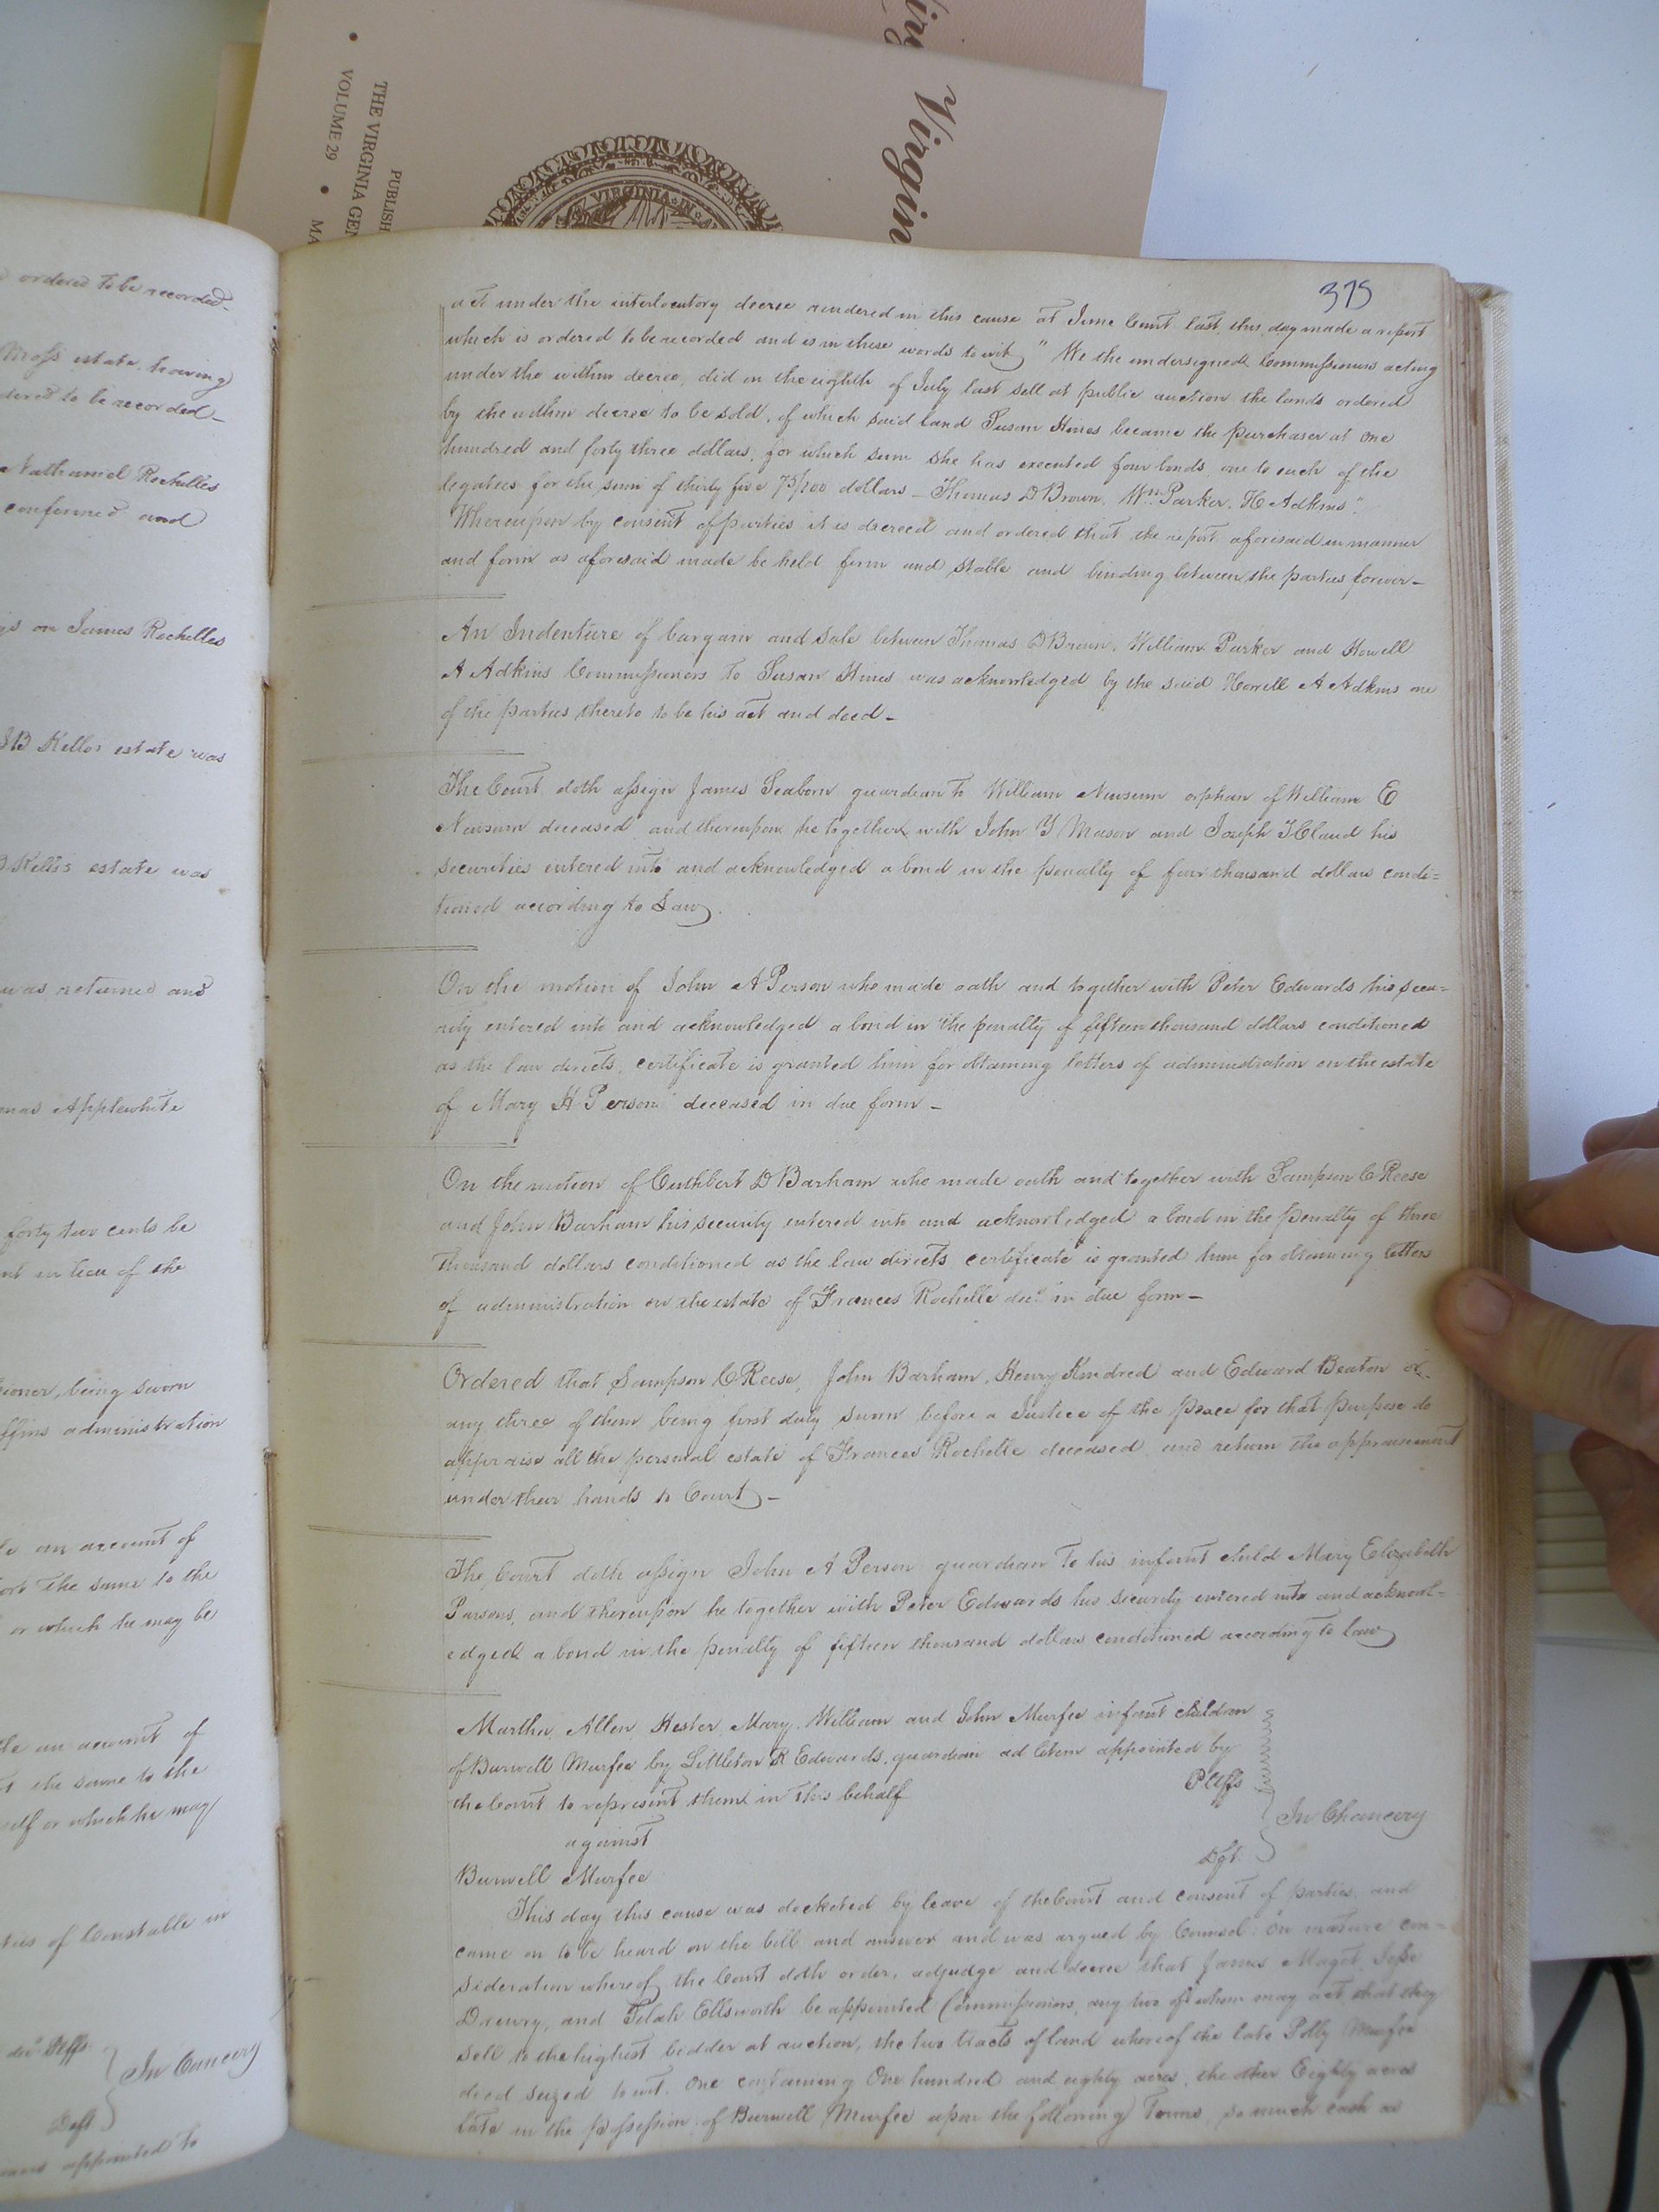 Virgin
PUBLISH
THE VIRGINIA GEN
VOLUME 29 • MA
VIRGINIA
ordered to be recorded
Moss estate, having
dered to be recorded
Nathaniel Rochelles
confirmed and
on James Rochelles
JB Kellos estate was
Kellos estate was
was returned and
Applewhite
forty two cents be
in lieu of the
being sworn
administration
an account of
the same to the
or which he may be
an account of
the same to the
self or which he may
of Constable in
Plffs
In Cancery
Deft
appointed to
375
act under the interlocutory decree rendered in this cause at June Court last this day made a report
which is ordered to be recorded and is in these words to wit, "We the undersigned Commissioners acting
under the within decree, did on the eighth of July last sell at public auction the lands ordered
by the within decree to be sold, of which said land Susan Hines became the purchaser at one
hundred and forty three dollars, for which sum she has executed four bonds one to each of the
legatees for the sum of thirty five 75/100 dollars - Thomas D Brown, Wm Parker, H Adkins".
Whereupon by consent of parties it is decreed and ordered that the report aforesaid in manner
and form as aforesaid made be held firm and stable and binding between the parties forever -
An Indenture of bargain and sale between Thomas D Brown, William Parker and Howell
A Adkins Commissioners to Susan Hines was acknowledged by the said Howell A Adkins one
of the parties thereto to be his act and deed -
The Court doth assign James Seaborn guardian to William Newsum orphan of William E
Newsum deceased and thereupon he together with John Y Mason and Joseph T Claud his
securities entered into and acknowledged a bond in the penalty of four thousand dollars condi=
tioned according to Law.
On the motion of John A Person who made oath and together with Peter Edwards his secu=
rity entered into and acknowledged a bond in the penalty of fifteen thousand dollars conditioned
as the law directs, certificate is granted him for obtaining letters of administration on the estate
of Mary H Person deceased in due form -
On the motion of Cuthbert D Barham who made oath and together with Sampson C Reese
and John Barham his security entered into and acknowledged a bond in the penalty of three
thousand dollars conditioned as the law directs certificate is granted him for obtaining letters
of administration on the estate of Frances Rochelle decd in due form -
Ordered that Sampson C Reese, John Barham, Henry Kindred and Edward Beaton or
any three of them being first duly sworn before a Justice of the Peace for that purpose do
appraise all the personal estate of Frances Rochelle deceased and return the appraisement
under their hands to Court -
The Court doth assign John A Person guardian to his infant child Mary Elizabeth
Parsons, and thereupon he together with Peter Edwards his security entered into and acknowl=
edged a bond in the penalty of fifteen thousand dollars conditioned according to law
Martha, Allen, Hester, Mary, William and John Murfee infant children
of Burwell Murfee by Littleton R Edwards, guardian ad litem appointed by
the Court to represent them in this behalf Pltffs
In Chancery
against
Burwell Murfee Dft.
This day this cause was docketed by leave of the Court and consent of parties, and
came on to be heard on the bill and answer and was argued by Counsel. On mature con=
sideration whereof the Court doth order, adjudge and decree that James Maget, Jesse
Drewry, and Ellsworth be appointed Commissioners, any two of whom may act that they
sell to the highest bidder at auction, the two tracts of land whereof the late Polly Murfee
died seized to wit. One containing One hundred and eighty acres, the other Eighty acres
late in the possession of Burwell Murfee upon the following Terms, so much cash as